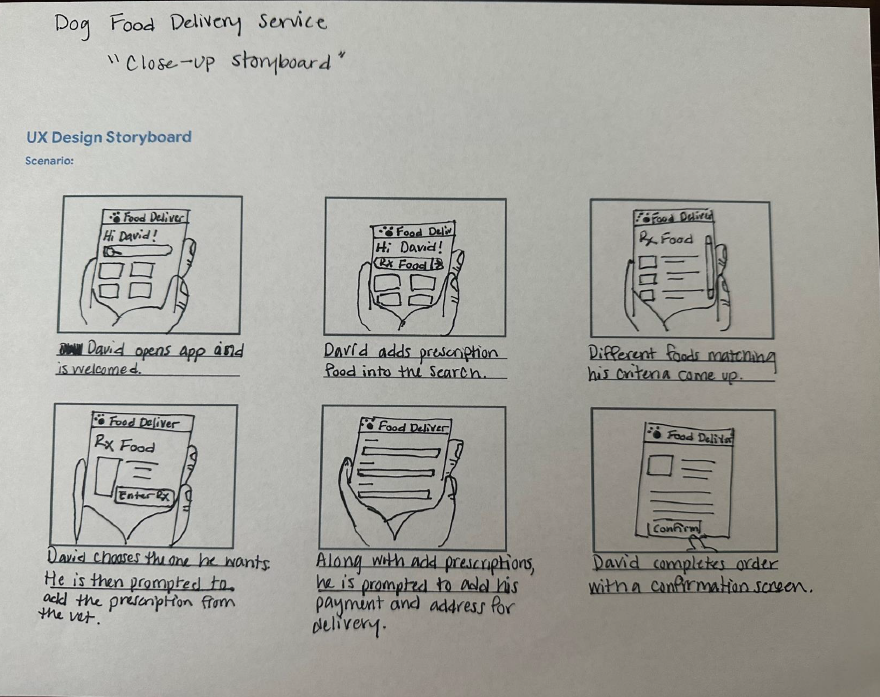 Dog Food Delivery Service
"Close-up storyboard"
UX Design Storyboard
Scenario:
Food Deliver
Hi David!
David opens app and
is welcomed.
Food Deliv
Hi David!
Rx Food
David adds prescription
food into the search.
Food Deliver
Rx Food
Different foods matching
his criteria come up.
Food Deliver
Rx Food
Enter Rx
David chooses the one he wants.
He is then prompted to
add the prescription from
the vet.
Food Deliver
Along with add prescriptions,
he is prompted to add his
payment and address for
delivery.
Food Deliver
Confirm
David completes order
with a confirmation screen.